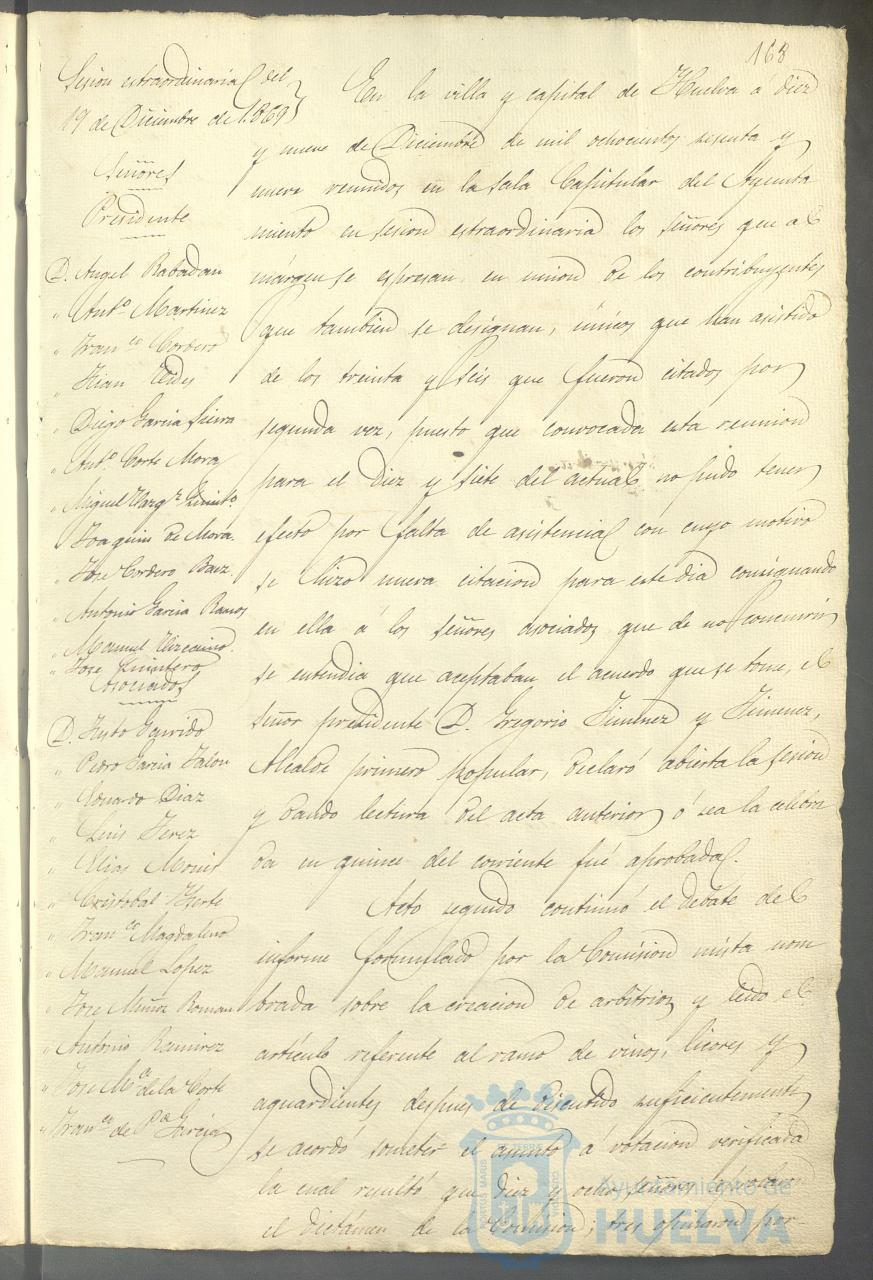 168
Sesion estraordinaria del
19 de Diciembre de 1.869
Señores
Presidente
D. Angel Rabadan
" Ant.º Martinez
" Fran.co Cordero
" Diego Garcia Sierra
" Ant.º Corte Mora
" Miguel Vazq.z
" Joaquin de Mora
" Jose Cordero Baez
" Antonio Garcia Ramos
" Manuel Vizcaino
" Jose Quintero
Asociados
D. Justo Garrido
" Pedro Garcia Jalon
" Eduardo Diaz
" Luis Jerez
" Elias
" Cristobal
" Fran.co Magdaleno
" Manuel Lopez
" Jose Muñoz Roman
" Antonio Ramirez
" Jose M.a de la Corte
" Fran.co de P.a Garcia
En la villa y capital de Huelva á diez
y nueve de Diciembre de mil ochocientos sesenta y
nueve reunidos en la Sala Capitular del Ayunta
miento en sesion estraordinaria los señores que al
márgen se espresan en union de los contribuyentes
que tambien se designan, únicos que han asistido
de los treinta y seis que fueron citados por
segunda vez, puesto que convocada esta reunion
para el diez y siete del actual no pudo tener
efecto por falta de asistencia con cuyo motivo
se hizo nueva citacion para este dia consignando
en ella á los señores asociados que de no concurrir
se entendia que aceptaban el acuerdo que se tome, el
señor presidente D. Gregorio Jimenez y Jimenez,
Alcalde primero popular, declaró abierta la sesion
y dando lectura del acta anterior ó sea la celebra
da en quince del corriente fué aprobada.
Acto seguido continuó el debate del
informe formulado por la Comision mista nom
brada sobre la creacion de arbitrios y leido el
artículo referente al ramo de vinos, licores y
aguardientes despues de discutido suficientemente
se acordó someter el asunto á votacion verificada
la cual resultó que diez y ocho señores
el dictámen de la Comision; tres opinaron por
Ayuntamiento de
HUELVA